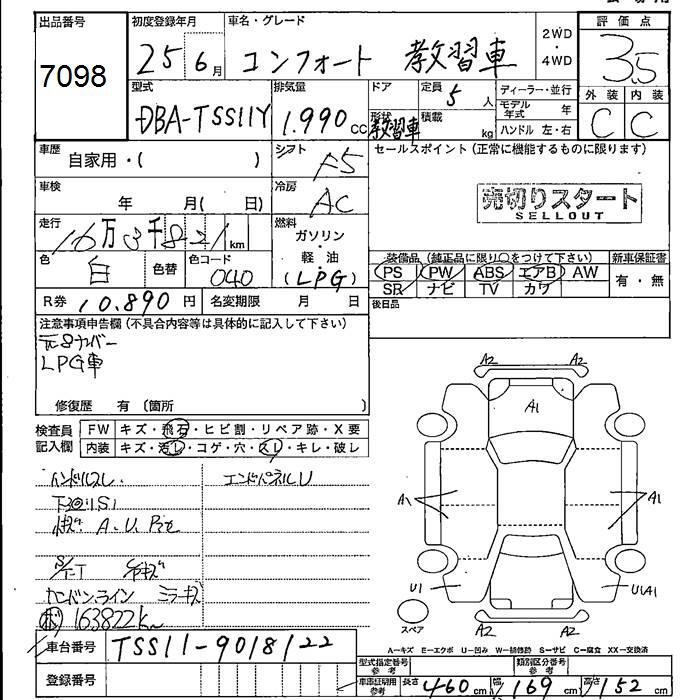 出品番号
7098
初度登録年月
25 6月
車名・グレード
コンフォート 教習車
2WD
・
4WD
評価点
3.5
外装 内装
C C
型式
DBA-TSS11Y
排気量
1.990 cc
ドア
形状
教習車
定員
5 人
積載
kg
ディーラー・並行
モデル年式 年
ハンドル 左・右
車歴
自家用・( )
シフト
F5
セールスポイント (正常に機能するものに限ります)
売切りスタート
SELLOUT
車検
年 月( 日)
冷房
AC
走行
16万3千821km
燃料
ガソリン・
軽油
(LPG)
色
白
色替
色コード
040
装備品 (純正品に限り○をつけて下さい)
PS PW ABS エアB AW
SR ナビ TV カワ
新車保証書
有・無
後日品
R券 10.890円
名変期限 月 日
注意事項申告欄 (不具合内容等は具体的に記入して下さい)
元8ナンバー
LPG車
修復歴 有 〔箇所 〕
検査員
記入欄
FW キズ・飛石・ヒビ割・リペア跡・X要
内装 キズ・汚し・コゲ・穴・スレ・キレ・破し
ハンドルスレ
エンドパネルU
下回りS1
A.U.
S/T
キズ
ミラーキズ
163822km
車台番号
TSS11-9018122
登録番号
A2 A2
A1
A1 A1
U1 U1A1
スペア
A2 A2
A−キズ E−エクボ U−凹み W−補修跡 S−サビ C−腐食 XX−交換済
型式指定番号
参考
類別区分番号
参考
車庫証明用
参考
長さ 460cm 幅 169cm 高さ 152cm